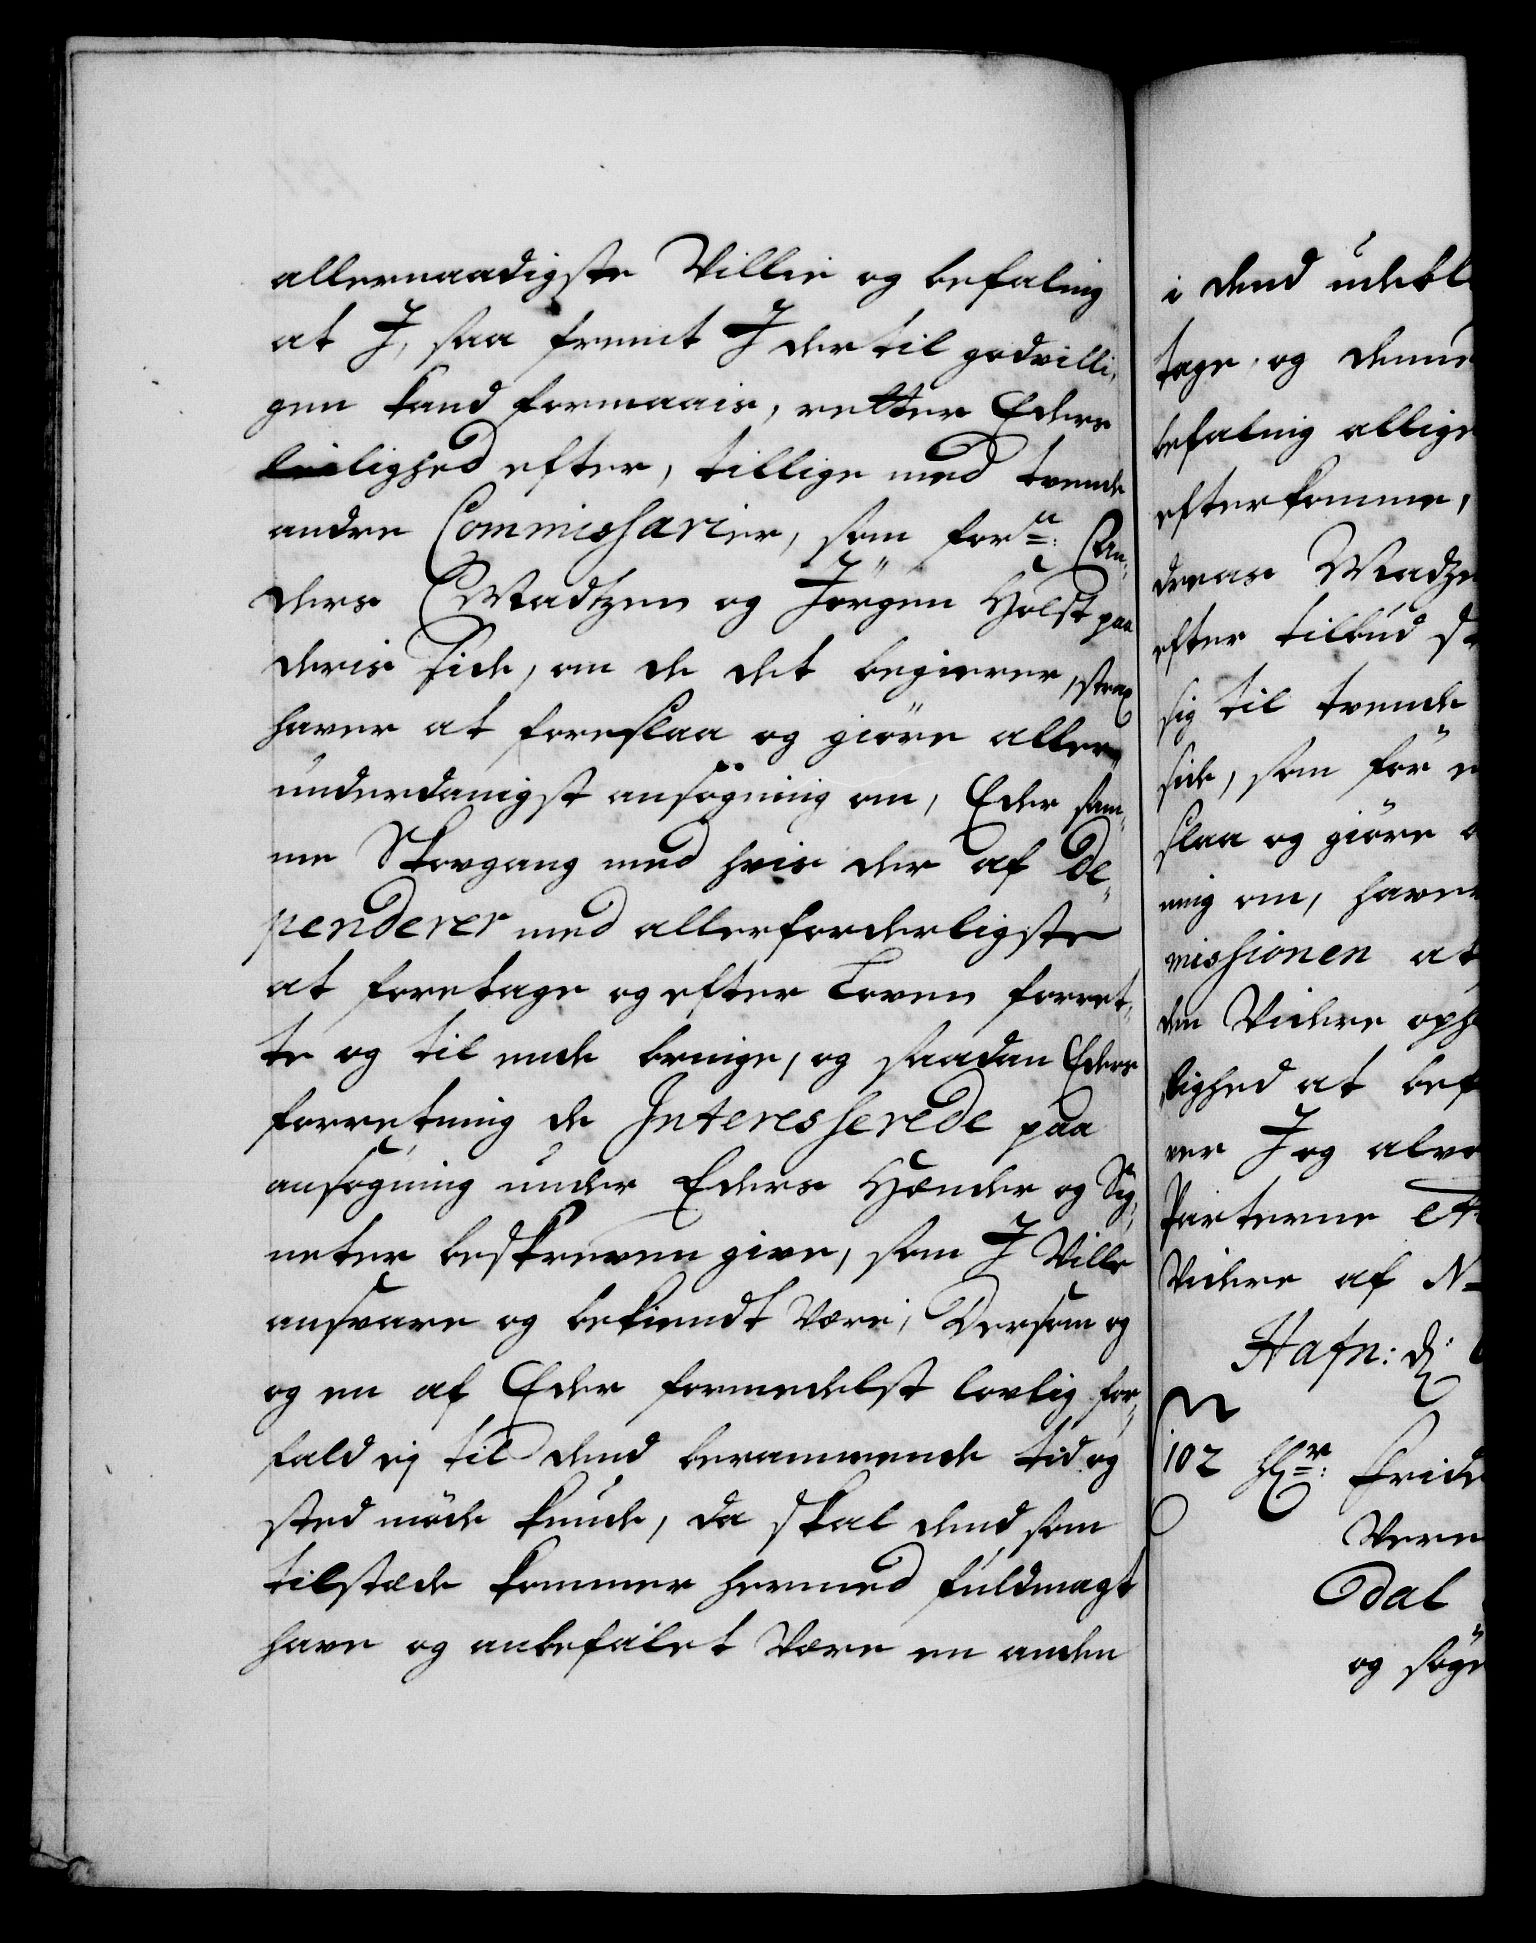 allernaadigste Villie og befaling
at J, saa fremt J dertil godvilli,
gen kand formaais, retter Eders
leilighed efter, tillige med tvende
andre Commissharier, som for:n: An,
ders Madtzen og Jörgen Holst paa
deris side, om de det begierer, strax
haver at foreslaa og giöre aller,
underdanigst ansögning om, Eder sam,
me Skovgang med hvis der af De,
penderer med allerforderligste
at foretage og efter Loven forret,
te og til ende bringe, og saadan Eders
forretning de Interesserede paa
ansögning under Eders Hænder og Sig,
neter beskreven give, som J Ville
ansvare og bekiendt Være, Dersom og
og en af Eder formedelst lovlig for,
fald ej til dend berammende tid og
sted möde kunde, da skal dend som
tilstæde kommer hermed fuldmagt
have og anbefalet Være en anden
i dend udebl
tage, og denne
befaling allige
efterkomme,
dreas Madze
efter tilbud
sig til tvende
side, som för
slaa og giöre
ning om, haver
missionen at
den Videre oph
lighed at bef
ver J og alvo
Parterne
Videre af
Hafn: d:
102 Hr: Frid
Vern
Odal
og söge